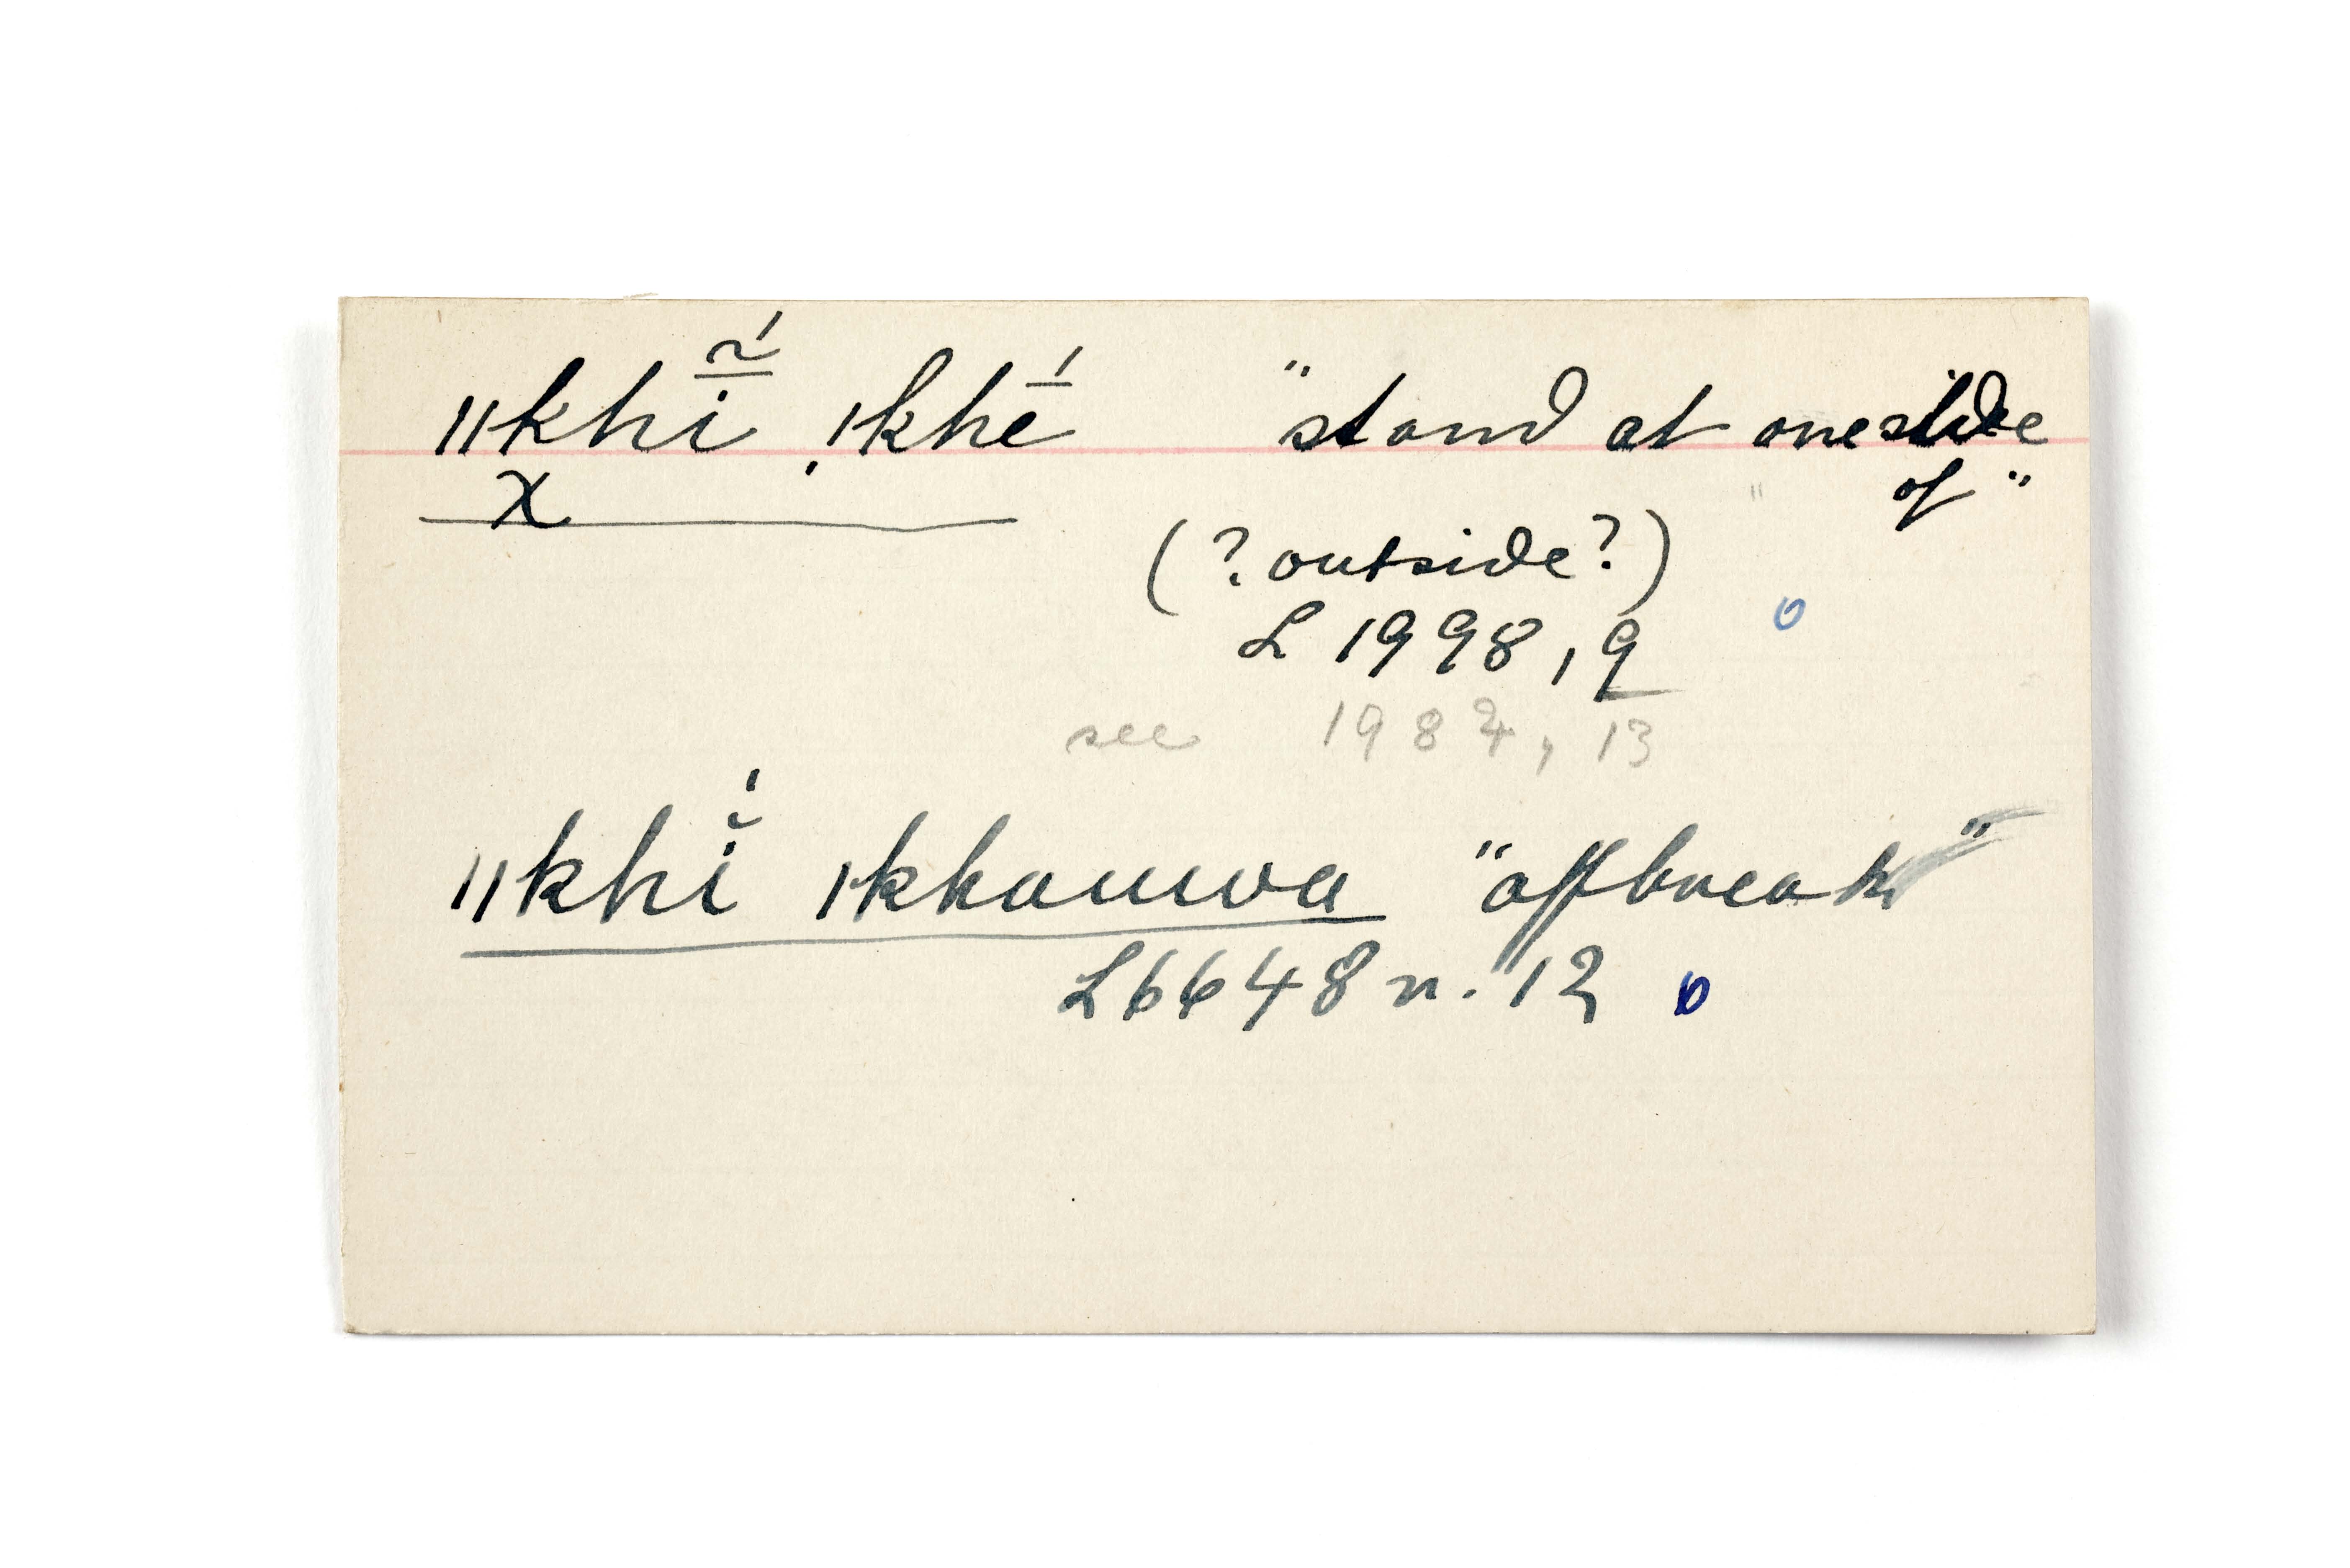 ||khĩ̱́ , |khé̱ "stand at one side
χ of"
(? outside?)
L 1998, 9
see 1984, 13
||khĭ́ |kkauwa "off break"
L 6648 n. 12